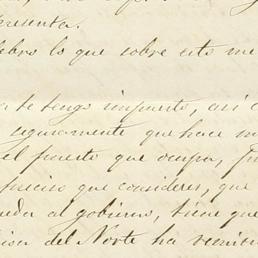 presenta.
lebro lo que sobre esto me
a te tengo impuesto, así c
seguramente que hace m
el puesto que ocupa,
preciso que consideres, que
ueda al gobierno, tiene que
ision del Norte ha remiti